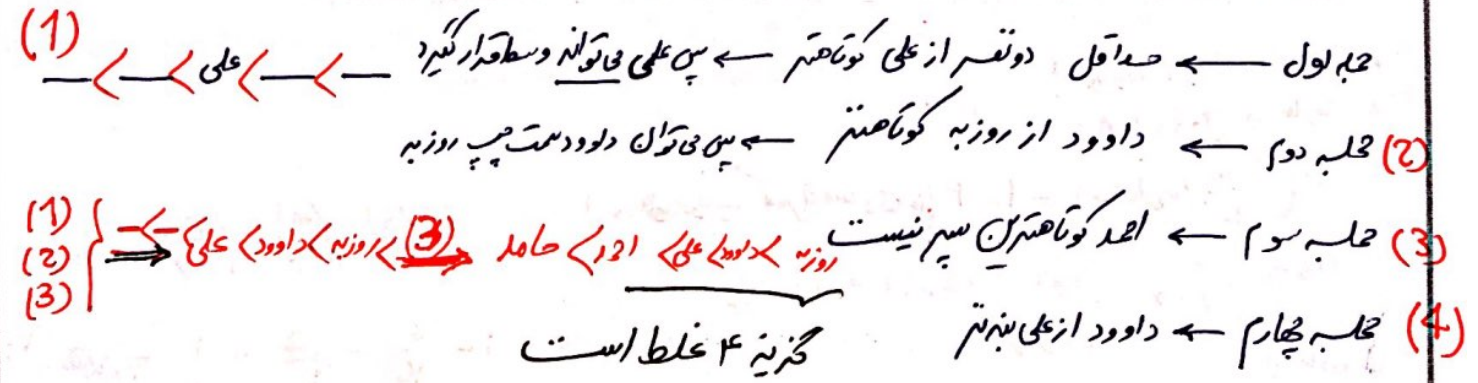 جمله اول ← حداقل دو نفر از علی کوتاهتر ← پس علی می‌تواند وسط قرار نگیرد — > — > علی > — > — (1)
(2) جمله دوم ← داوود از روزبه کوتاهتر ← پس می‌توان داوود سمت چپ روزبه
(3) جمله سوم ← احمد کوتاهترین پسر نیست روزبه > داوود > علی > احمد > حامد
(1) (2) (3) } ⇒ — > — > علی > داوود > روزبه (3) ⇒
(4) جمله چهارم ← داوود از علی بلندتر
گزینه ۴ غلط است